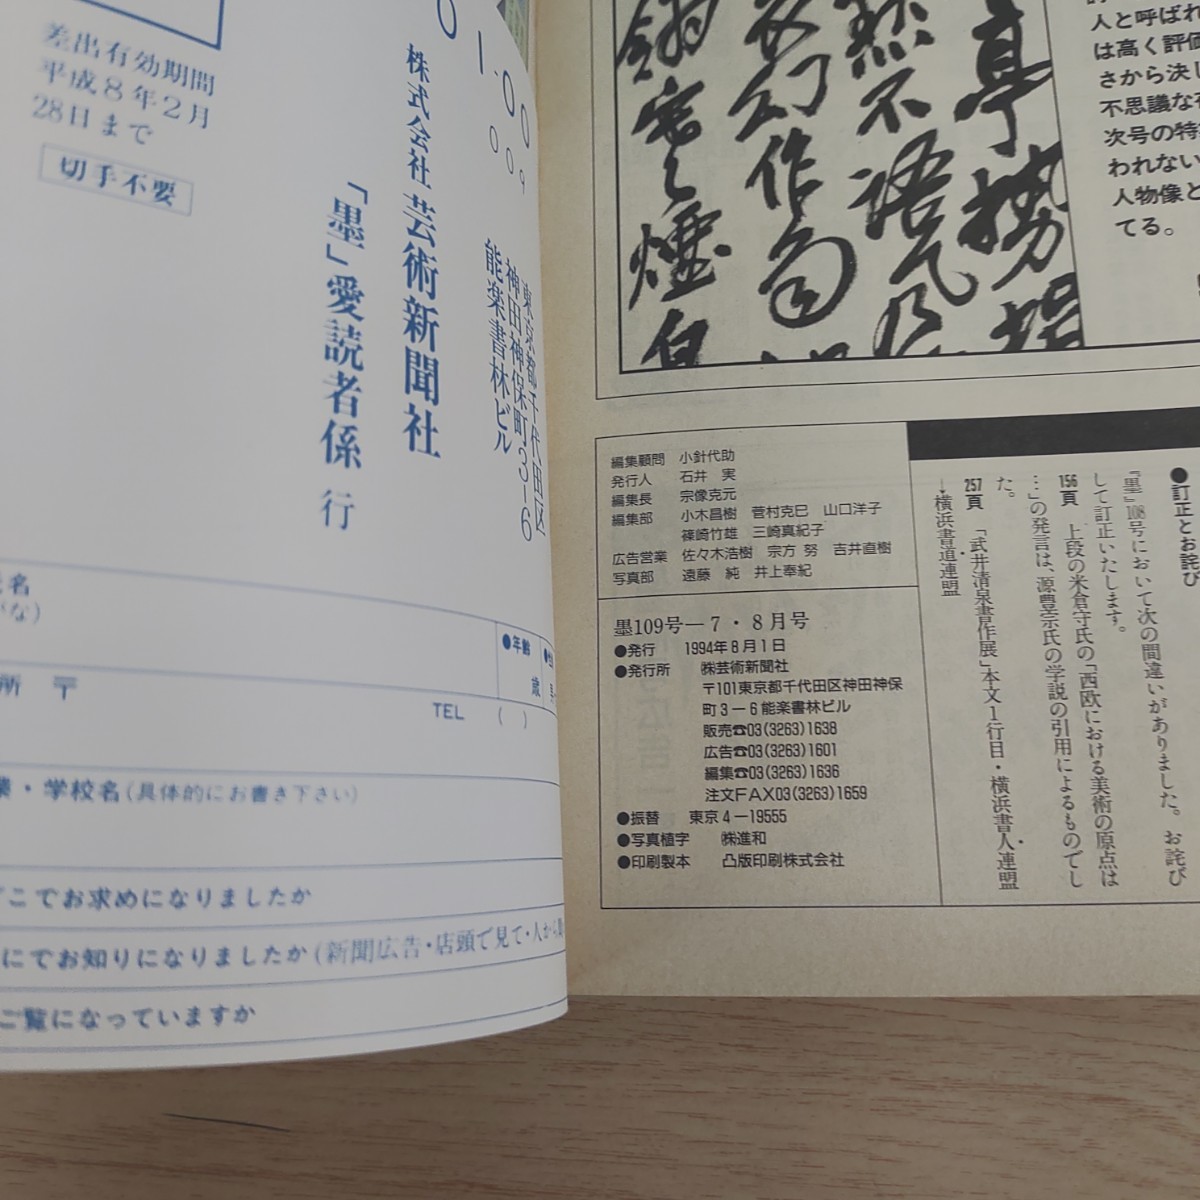 差出有効期間
平成8年2月
28日まで
切手不要
東京都千代田区
神田神保町・3-6
能楽書林ビル
株式会社 芸術新聞社
「墨」愛読者係 行
●年齢
歳
所 〒
TEL ( )
・学校名(具体的にお書き下さい)
こでお求めになりましたか
にてお知りになりましたか(新聞広告・店頭で見て・人から
ご覧になっていますか
人と呼ばれ
は高く評価
さから決し
不思議な
次号の特
われない
人物像と
てる。
●訂正とお詫び
『墨』108号において次の間違いがありました。お詫び
して訂正いたします。
156頁 上段の米倉守氏の「西欧における美術の原点は
…」の発言は、源豊宗氏の学説の引用によるものでし
た。
257頁 「武井清泉書作展」本文1行目・横浜書人連盟
→横浜書道連盟
編集顧問 小針代助
発行人 石井 実
編集長 宗像克元
編集部 小木昌樹 菅村克巳 山口洋子
篠崎竹雄 三崎真紀子
広告営業 佐々木浩樹 宗方 努 吉井直樹
写真部 遠藤 純 井上奉紀
墨109号―7・8月号
●発行 1994年8月1日
●発行所 ㈱芸術新聞社
〒101東京都千代田区神田神保
町3－6能楽書林ビル
販売☎03(3263)1638
広告☎03(3263)1601
編集☎03(3263)1636
注文FAX03(3263)1659
●振替 東京4－19555
●写真植字 ㈱進和
●印刷製本 凸版印刷株式会社